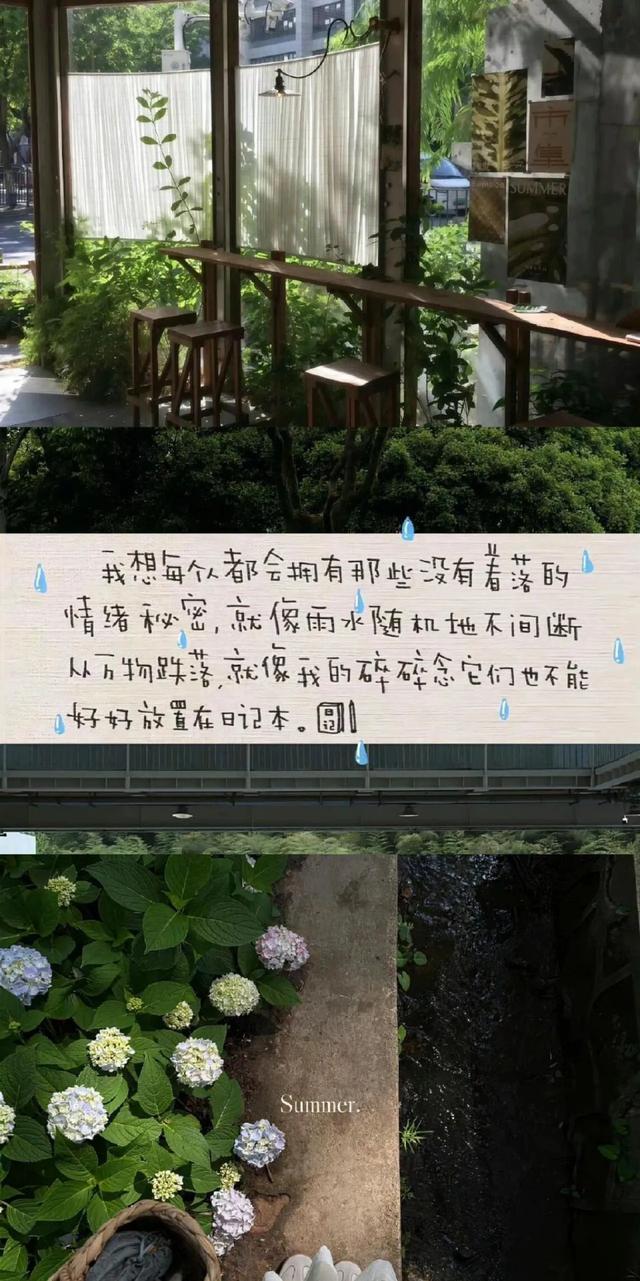 市
集
SUMMER
我想每个人都会拥有那些没有着落的
情绪秘密，就像雨水随机地不间断
从万物跌落，就像我的碎碎念它们也不能
好好放置在日记本。
日记
Summer.